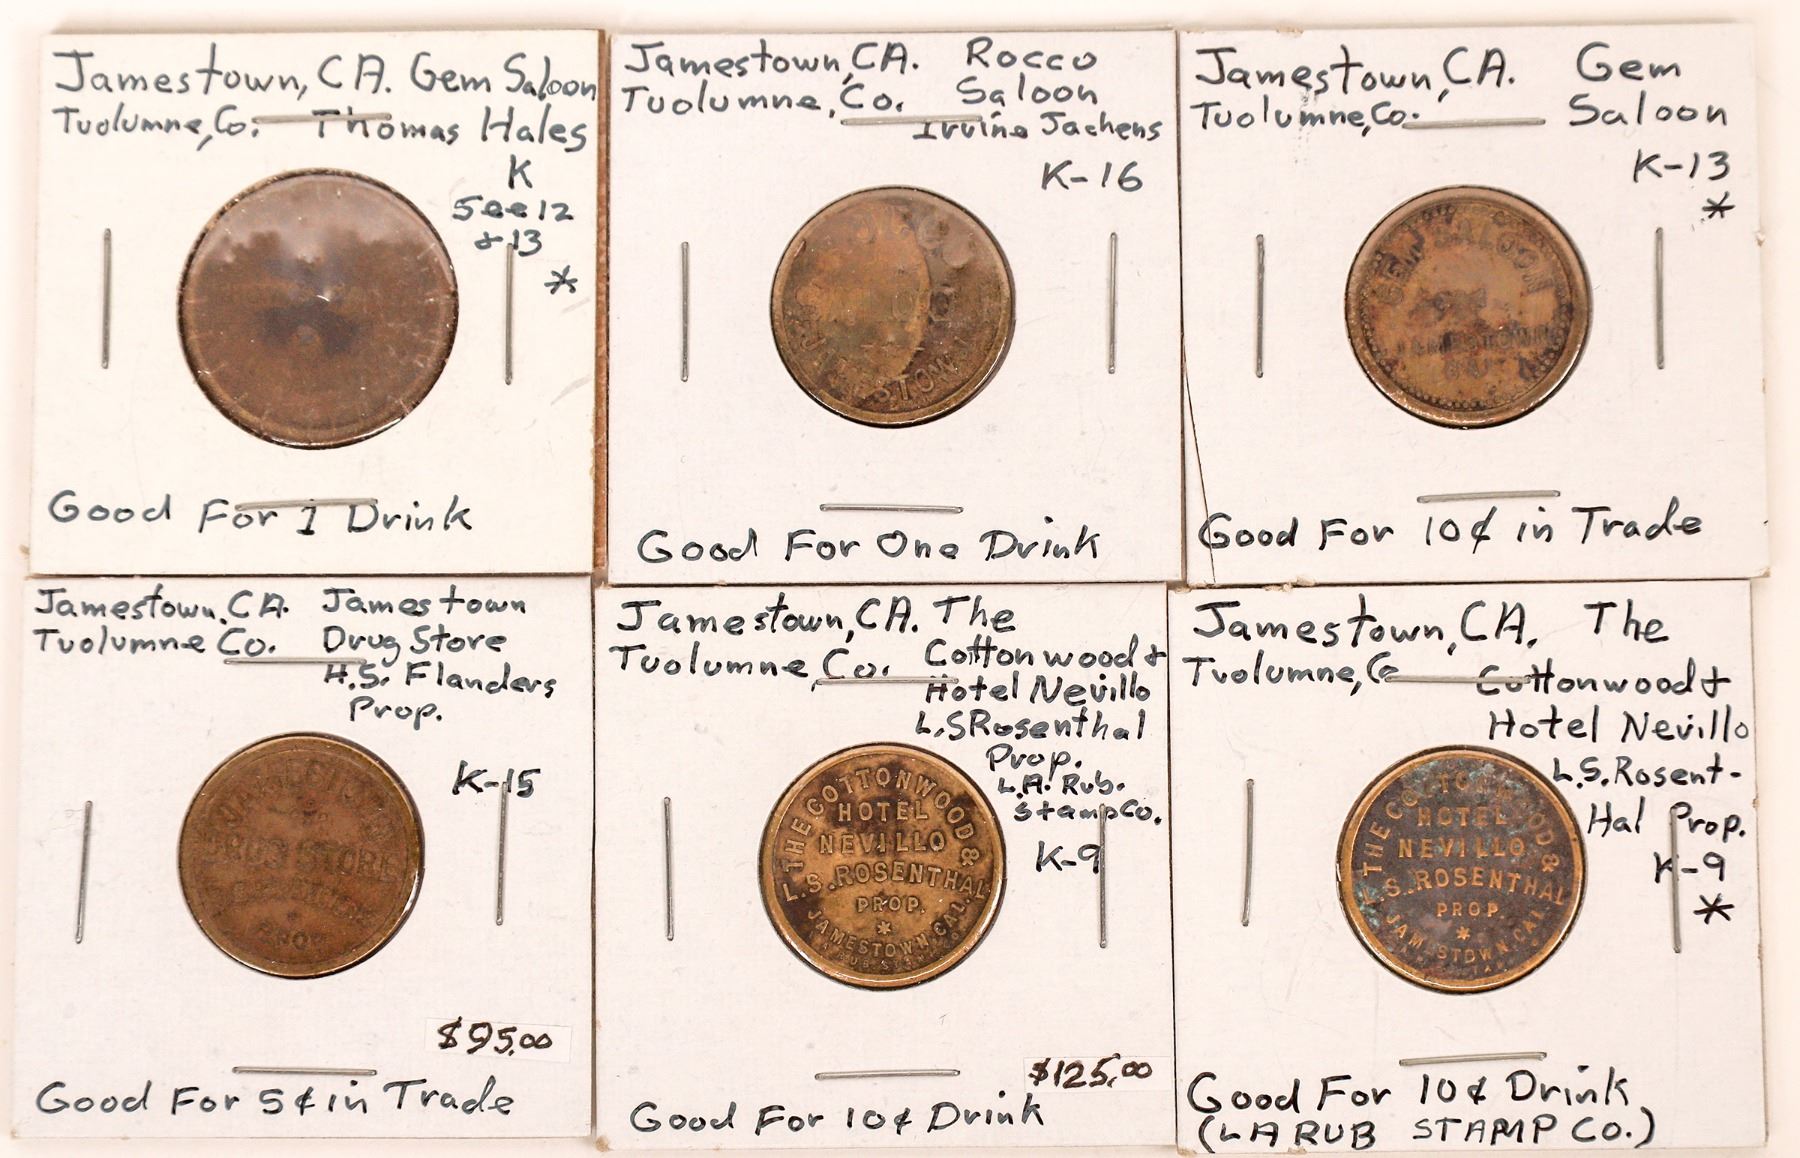 Jamestown, CA. Gem Saloon
Tuolumne, Co. Thomas Hales
K
See 12
& 13
*
Good For 1 Drink
Jamestown, CA. Rocco
Tuolumne, Co. Saloon
Irvine Jachens
K-16
JAMESTOWN
Good For One Drink
Jamestown, CA. Gem
Tuolumne, Co. Saloon
K-13
*
GEM SALOON
JAMESTOWN
CAL
Good For 10¢ in Trade
Jamestown, CA. Jamestown
Tuolumne Co. Drug Store
H.S. Flanders
Prop.
K-15
JAMESTOWN
DRUG STORE
PROP
$95.00
Good For 5¢ in Trade
Jamestown, CA. The
Tuolumne, Co. Cottonwood &
Hotel Nevillo
L.S Rosenthal
Prop.
L.A. Rub.
Stamp Co.
K-9
THE COTTONWOOD &
HOTEL
NEVILLO
L.S. ROSENTHAL
PROP.
*
JAMESTOWN, CAL.
$125.00
Good For 10¢ Drink
Jamestown, CA. The
Tuolumne, Co Cottonwood &
Hotel Nevillo
L.S. Rosent-
Hal Prop.
K-9
*
THE COTTONWOOD &
HOTEL
NEVILLO
L.S. ROSENTHAL
PROP.
*
JAMESTOWN, CAL
Good For 10¢ Drink
(LA RUB STAMP CO.)